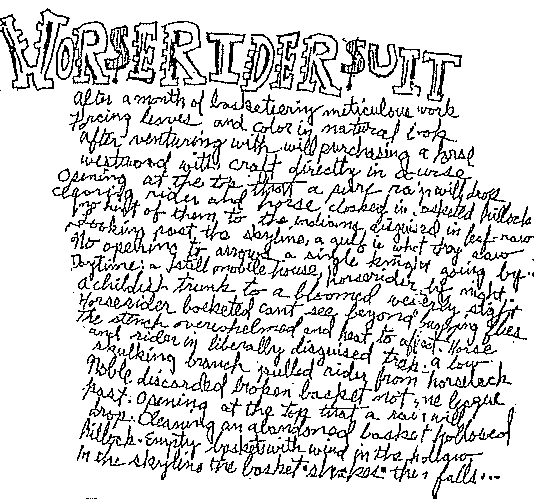 HORSERIDERSUIT
After a month of basketeering meticulous work
Forcing leaves and color in natural look
After venturing with will purchasing a horse
westwood with craft directly in a wise
Opening at the top that a sure rain will drop
Cleaning rider and horse cloaked in aspeled hillock
no hint of them to the indians disguised in leaf-row
Looking past the skyline, a gulf is what they saw
No opening to arrows a single knight going by.
Daytime: a still mobile house, horserider by night.
A childish trunk to a bloomed weierly staft
Horserider basketed cant see beyond buzzing flies
The stench overwhelmed and heat to a fist. Horse
and rider in liberally disguised trek. a low
skulking branch pulled rider from horseback
Noble discarded broken basket not, ne league
past. Opening at the top that a rain will
drop. Cleaning an abandoned basket hollowed
Hillock. Empty basket with wind in the hollow
In the skyline the basket shakes then falls...